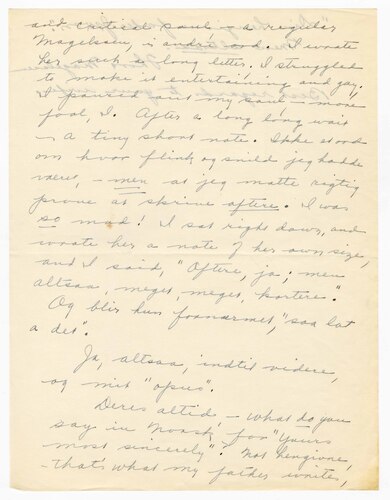 and critical soul - a regular
Magelssen, i andre ord. I wrote
her such a long letter. I struggled
to make it entertaining and gay.
I poured out my soul - more
fool, I. After a long long wait
- A tiny short note. Ikke stood
om hvor flink og snild jeg hadde
været, - men at jeg matte rigtig
prove at skrive oftere. I was
so mad! I sat right down, and
wrote her a note of her own size,
and I said, "Oftere, ja; men
altsaa, meget, meget, kortere."
Og blir hun fornarmet, "saa lat
a det".
Ja, altsaa, indtil videre,
og mit "opus".
Deres altid - what do you
say in Norsk, for "Yours
most sincerely"? Not hengivne,
that's what my father writes,